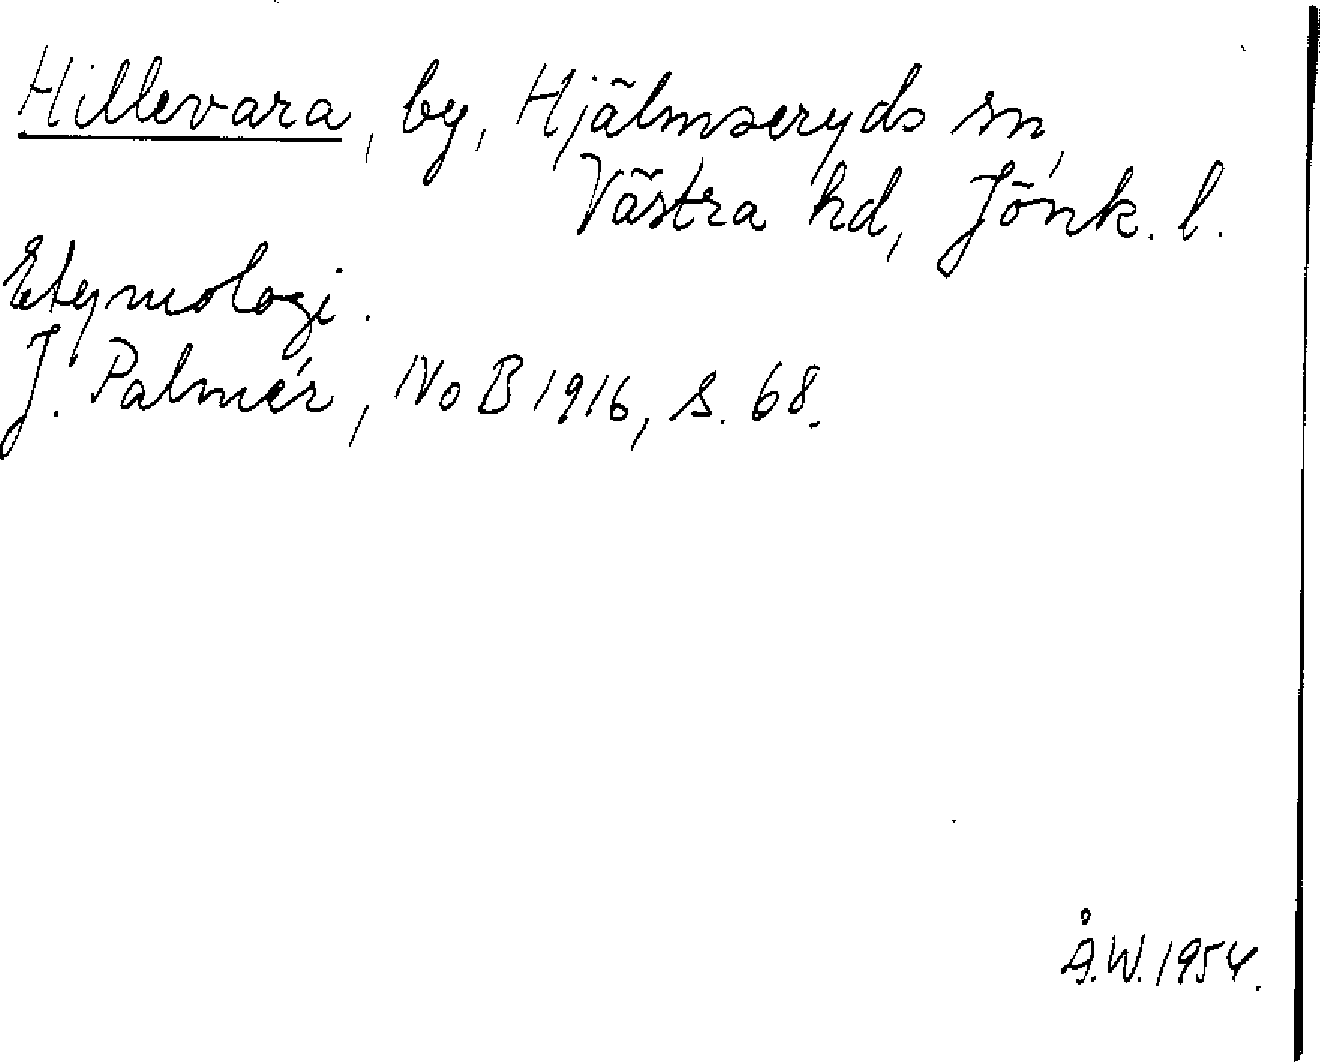 Hillevara, by, Hjälmseryds sn,
Västra hd, Jönk. l.
Etymologi.
J. Palmér, NoB 1916, s. 68.
Å.W. 1954.